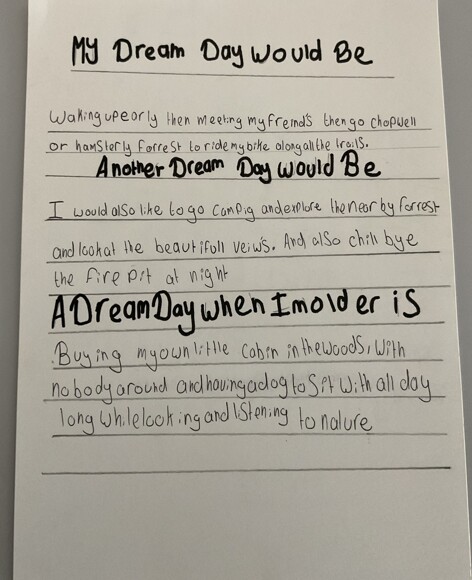 MY Dream Day would Be
Waking up early then meeting my freind's then go chopwell
or hamsterly forrest to ride my bike along all the trails.
Another Dream Day would Be
I would also like to go campig and explore the near by forrest
and look at the beautifull veiw's. And also chill bye
the fire pit at night
A Dream Day when Im older is
Buying my own little cabin in the woods, with
nobody around and having a dog to sit with all day
long while looking and listening to nature